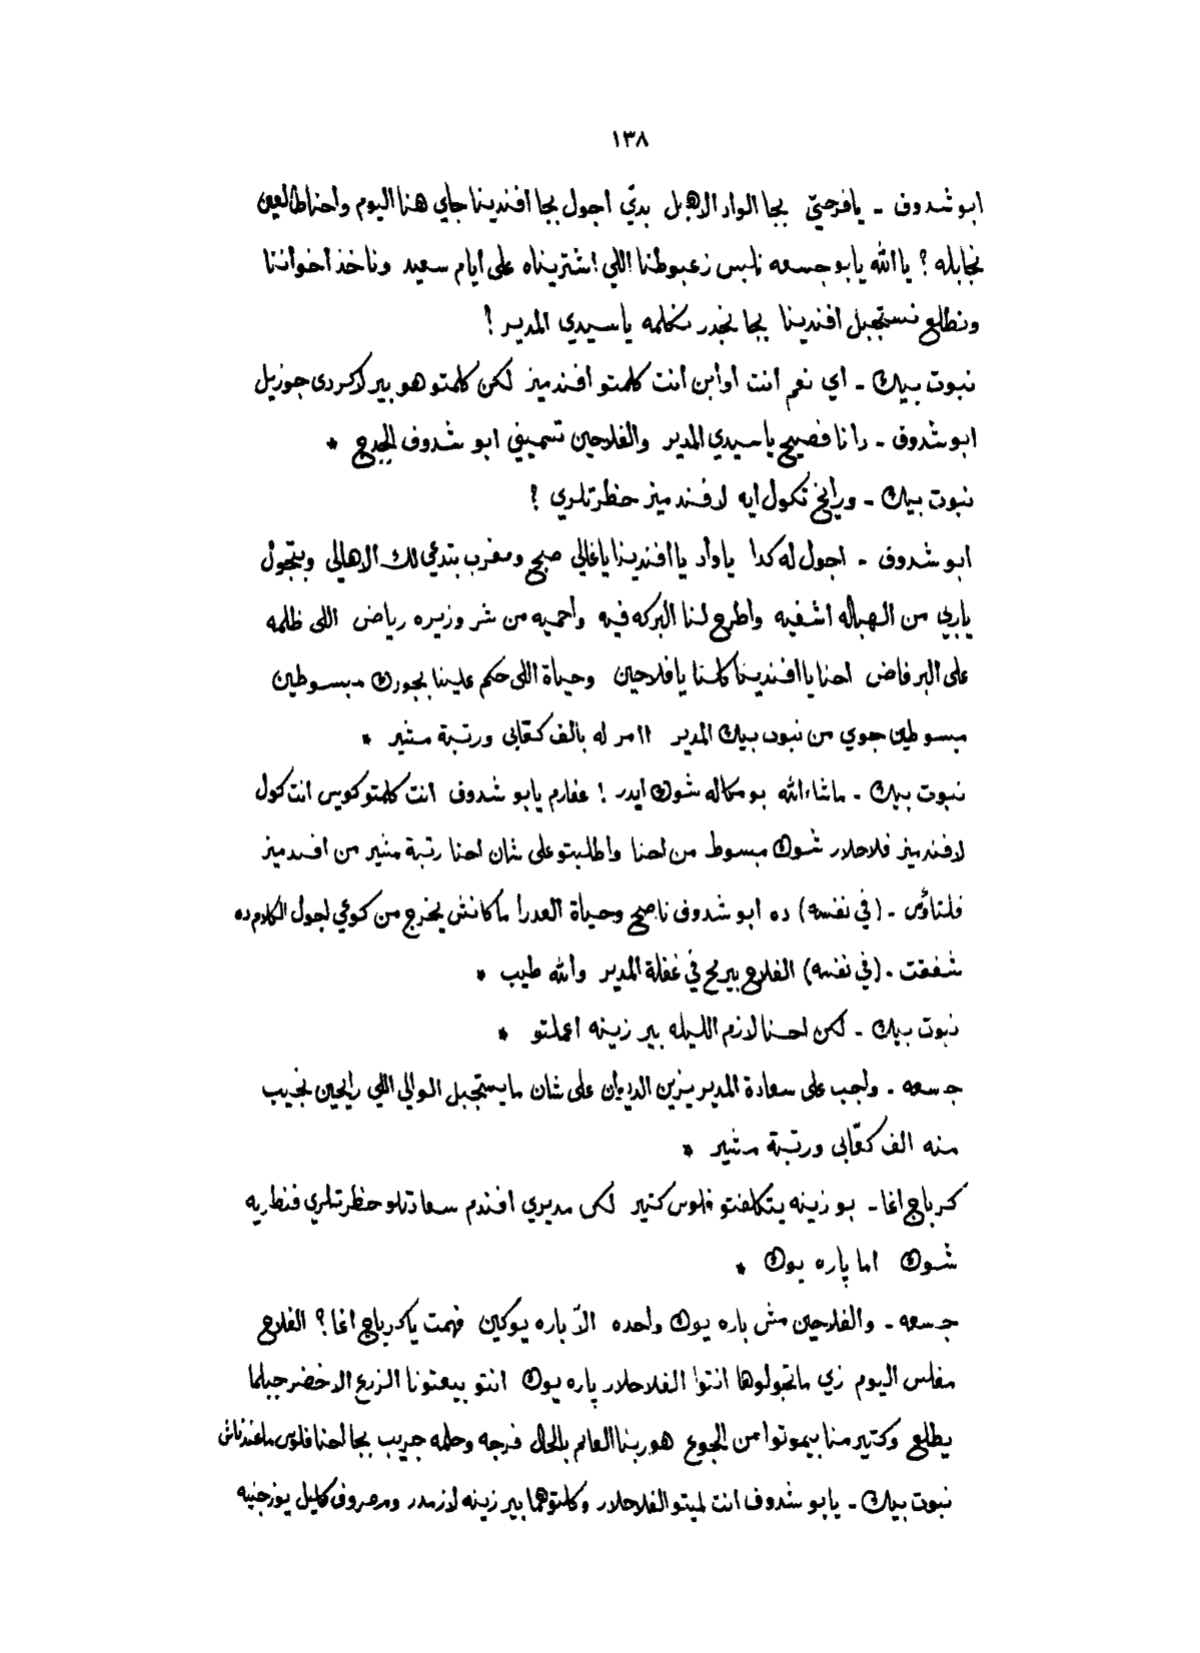 ١٣٨
ابو شدوف - يافرحتي بجا الواد الاهبل بدي اجول بجا افندينا جاي هنا اليوم واحنا طالعين
نجابله ؟ يا الله يابو جسعه نلبس زعبوطنا اللي اشتريناه على أيام سعيد وناخذ اخواننا
ونطلع نستجبل افندينا بجا نجدر نكلمه ياسيدي المدير !
نبوت بيك - اي نعم انت أوابن انت كلمتو افندميز لكن كلمتو هو بير لاكردى جوزيل
ابو شدوف - دا نا فصيح ياسيدي المدير والفلاحين تسميني ابو شدوف الجدح *
نبوت بيك - ورايح تكول ايه لافندميز حظرتلري ?
ابو شدوف - اجول له كدا ياواد يا افندينا ياغالي صبح ومغرب بتدعي لك الاهالى وبتجول
ياربي من الهباله اشفيه واطرح لنا البركه فيه وأحميه من شر وزيره رياض اللى ظلمه
على البر فاض احنا يا افندينا كلنا يا فلاحين وحياة اللى حكم علينا بجورك مبسوطين
مبسوطين جوي من نبوت بيك المدير اامر له بالف كعابى ورتبة مشير *
نبوت بيك - ماشاءالله بو مكاله شوك ايدر ! عفارم يابو شدوف انت كلمتو كويس انت كول
لافندميز فلاحلار شوك مبسوط من احنا واطلبتو على شان احنا رتبة مشير من افندميز
فلتاؤس - (في نفسه) ده ابو شدوف ناصح وحياة العدرا ماكانش يخرج من كوعي لجول الكلام ده
شفقت - (في نفسه) الفلاح بيرمح في غفلة المدير والله طيب *
نبوت بيك - لكن احنا لازم الليله بير زينه اعملتو *
جسعه - واجب على سعادة المدير يزين الديوان على شان ما يستجبل الوالي اللي رايحين نجيب
منه الف كعابى ورتبة مشير *
كرباج اغا - بو زينه يتكلفتو فلوس كتير لكى مديري افندم سعادتلو حظرتلري فنطريه
شوك اما پاره يوك *
جسعه - والفلاحين مش باره يوك واحده الا باره يوكين فهمت ياكرباج اغا ؟ الفلاح
مفلس اليوم زي ماتجولوها انتوا الفلاحلار پاره يوك انتو بيعتونا الزرع الاخضر جبلما
يطلع وكتير منا بيموتوا من الجوع هو ربنا العالم بالحال فرجه وحلمه جريب بجا احنا فلوس ماعندناش
نبوت بيك - يابو شدوف انت لميتو الفلاحلار وكلتوهما بير زينه لازمدر ومصروف كليل يوز جنيه